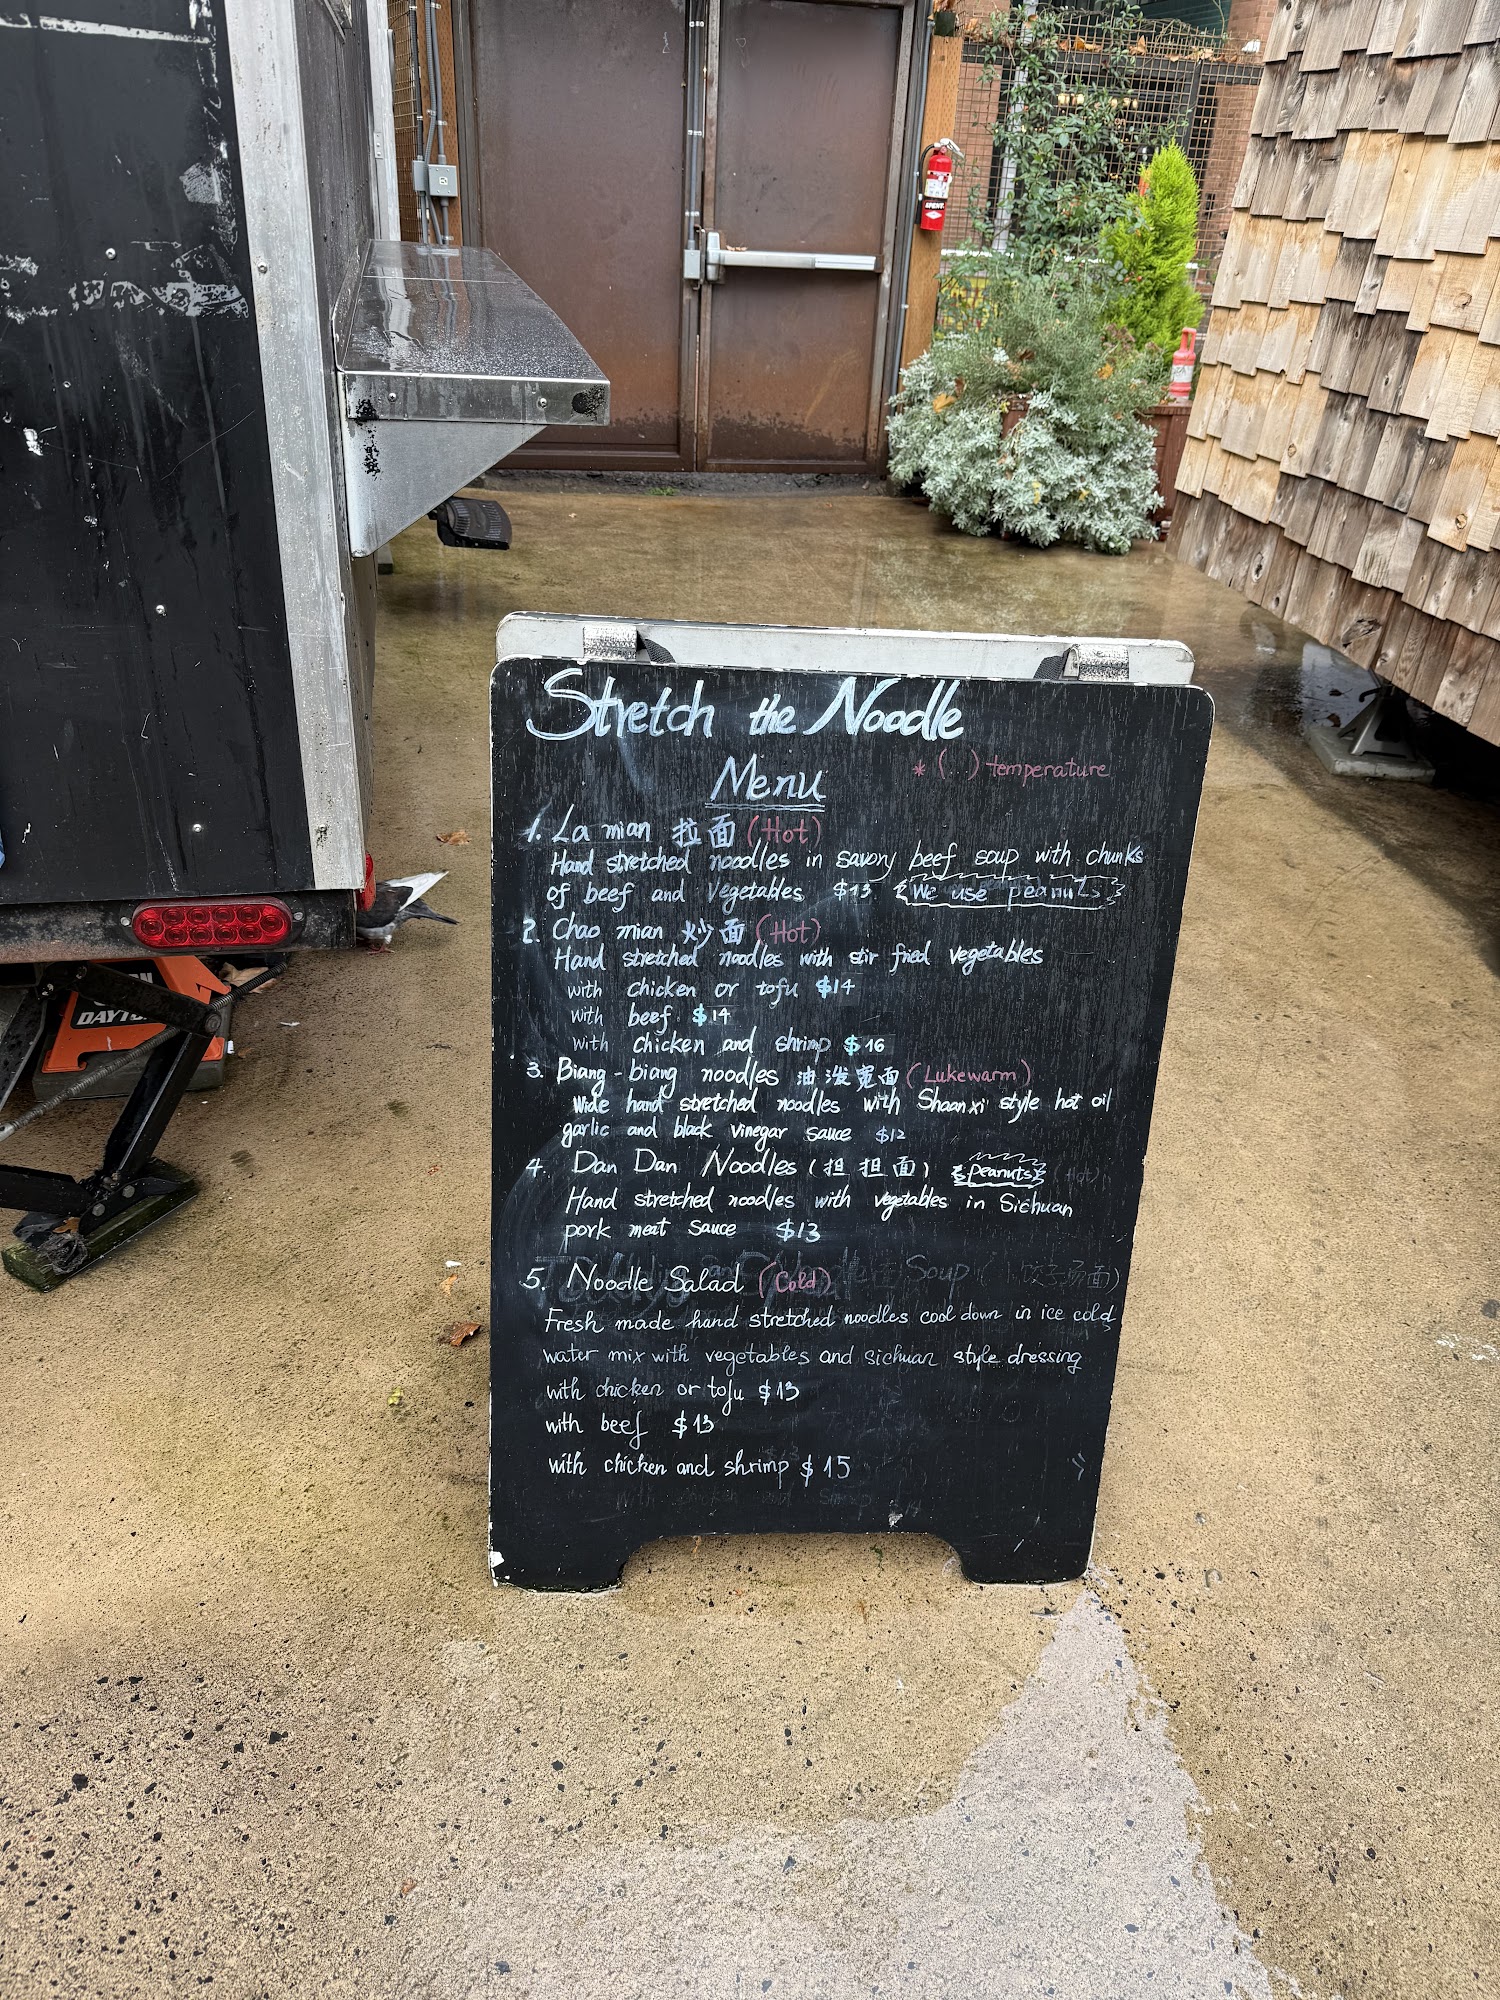 Stretch the Noodle
Menu
* ( ) temperature
1. La mian 拉面 (Hot)
Hand stretched noodles in savory beef soup with chunks
of beef and Vegetables $13 We use peanuts
2. Chao mian 炒面 (Hot)
Hand stretched noodles with stir fried vegetables
with chicken or tofu $14
with beef $14
with chicken and shrimp $16
3. Biang-biang noodles 油泼宽面 (Lukewarm)
Wide hand stretched noodles with Shaanxi style hot oil
garlic and black vinegar sauce $12
4. Dan Dan Noodles (担担面) peanuts (Hot)
Hand stretched noodles with vegetables in Sichuan
pork meat sauce $13
5. Noodle Salad (Cold) Soup
Fresh made hand stretched noodles cool down in ice cold
water mix with vegetables and sichuan style dressing
with chicken or tofu $13
with beef $13
with chicken and shrimp $15